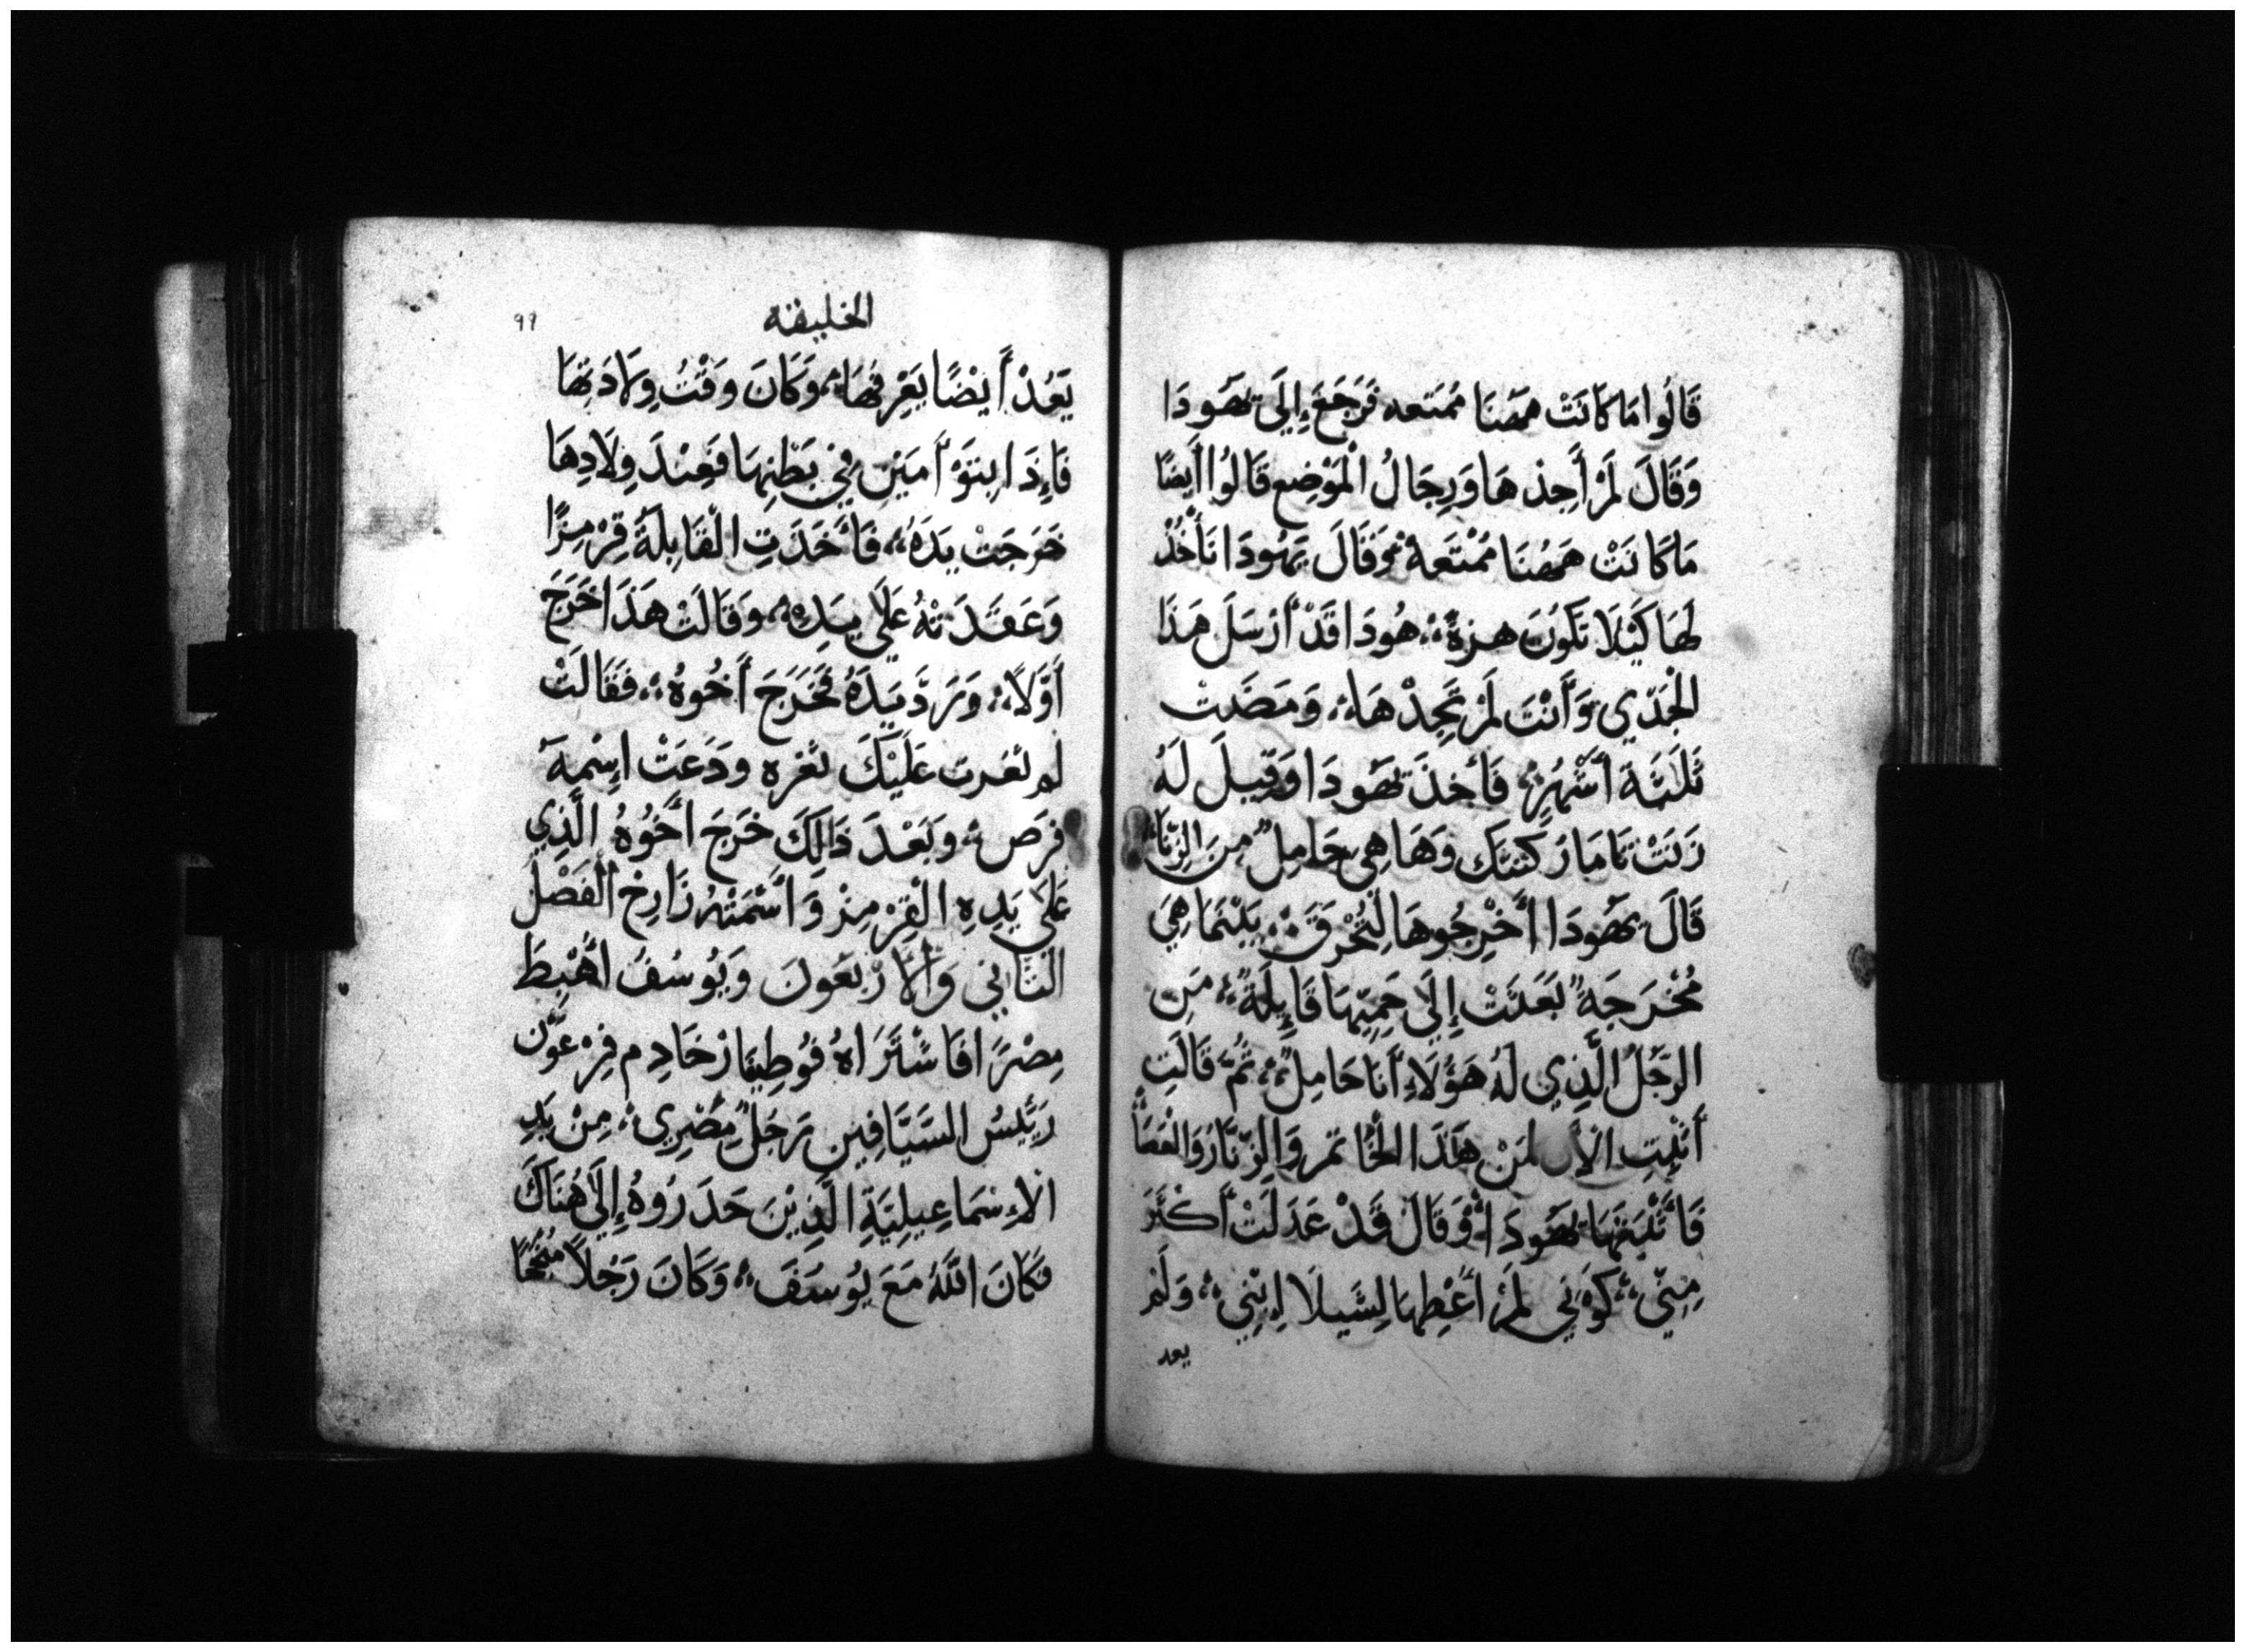 قَالُوا مَا كَانَتْ هَهُنَا مُمَتعه فَرَجَعَ إِلَى يَهُودَا
وَقَالَ لَمْ أَجِدْهَا وَرِجَالُ الْمَوْضِعِ قَالُوا أَيضًا
مَا كَانَتْ هَهُنَا مُمْتَعَةٌ وَقَالَ يَهُودَا تَأْخُذْ
لَهَا كَيْلَا تَكُونَ هزةٌ هُودَا قَدْ أَرْسَلَ هَذَا
الْجَدْيَ وَأَنْتَ لَمْ تَجِدْهَا وَمَضَتْ
ثَلَثَةَ أَشْهُرٍ فَأُخِذَ يَهُودَا وَقِيلَ لَهُ
زَنَتْ تَامَارْ كَنَّتَكَ وَهَا هِي حَامِلٌ مِنَ الزِّنَا
قَالَ يَهُودَا أَخْرِجُوهَا لِتُحْرَقَ بَيْنَمَا هِيَ
مُخْرَجَةٌ بَعَثَتْ إِلَى حَمِيِّهَا قَايِلَةً مَن
الرَّجُلُ الَّذِي لَهُ هَؤُلَاءِ أَنَا حَامِلٌ ثُمَّ قَالَتِ
أَثْبِتِ الْآن لِمَنْ هَذَا الْخَاتَمْ وَالزِّنَّارُ وَالْعَصَا
فَأَثْبَتَهَا يَهُودَا وَقَالَ قَدْ عَدَلَتْ أَكْثَرَ
مِنِّي كَوْنِي لَمْ أُعْطِهَا لِشَيلَا ابْنِي وَلَمْ
يعد
الخليقه
٩٩
يَعُدْ أَيْضًا يَعْرِفُهَا وَكَانَ وَقْتُ وِلَادَتِهَا
فَإِذَا بِتَوْأَمَيْنِ فِي بَطْنِهَا فَعِنْدَ وِلَادِهَا
خَرَجَتْ يَدَهُ فَأَخَذَتِ الْقَابِلَةُ قِرْمِزًا
وَعَقَدَتْهُ عَلَى يَدِهِ وَقَالَتْ هَذَا خَرَجَ
أَوَّلًا وَرَدَّ يَدَهُ فَخَرَجَ أَخُوهُ فَقَالَتْ
لم ثغرت عَلَيْكَ ثغره وَدَعَتْ اِسْمَهُ
فَرَص وَبَعْدَ ذَالِكَ خَرَجَ أَخُوهُ الَّذِي
عَلَى يَدِهِ الْقِرْمِزْ وَأَسْمَتْهُ زَارِخ الْفَصْلُ
الثَّانِي وَالْأَرْبَعُونَ وَيُوسُفُ أُهْبِطَ
مِصْرًا فَاشْتَرَاهُ فُوطِيفَارْ خَادِم فِرْعَوْن
رَيِّسُ السَيَّافِين رَجَلٌ مِصْرِي مِنْ يَدِ
الْإِسْمَاعِيلِيَّةِ الَّذِيْنَ حَدَرُوهُ إِلَى هُنَاكَ
فَكَانَ اللَّهُ مَعَ يُوسَفَ وَكَانَ رَجُلًا مُنْجِحًا